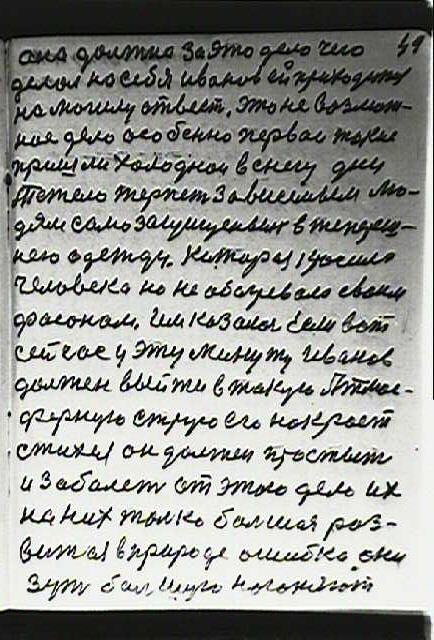 она должна за это дело чего 49
делол на себя иванов ей приходитца
на могилу ответ. Это не возмож-
ное дело особенно первое такие
пришли холодной в снегу дни
тежело терпет зависимым лю-
дям само защищеных в тепереш-
нею одежду. Которая красила
человека но не обогревала своим
фасоном. Им казалос если вот
сейчас у эту минуту иванов
должен выйти в такую Атмос-
ферную струю его накроет
стихея он должен простыт
и заболет от этого дело их
на них толко болшая роз-
витая в природе ошибка они
болшую